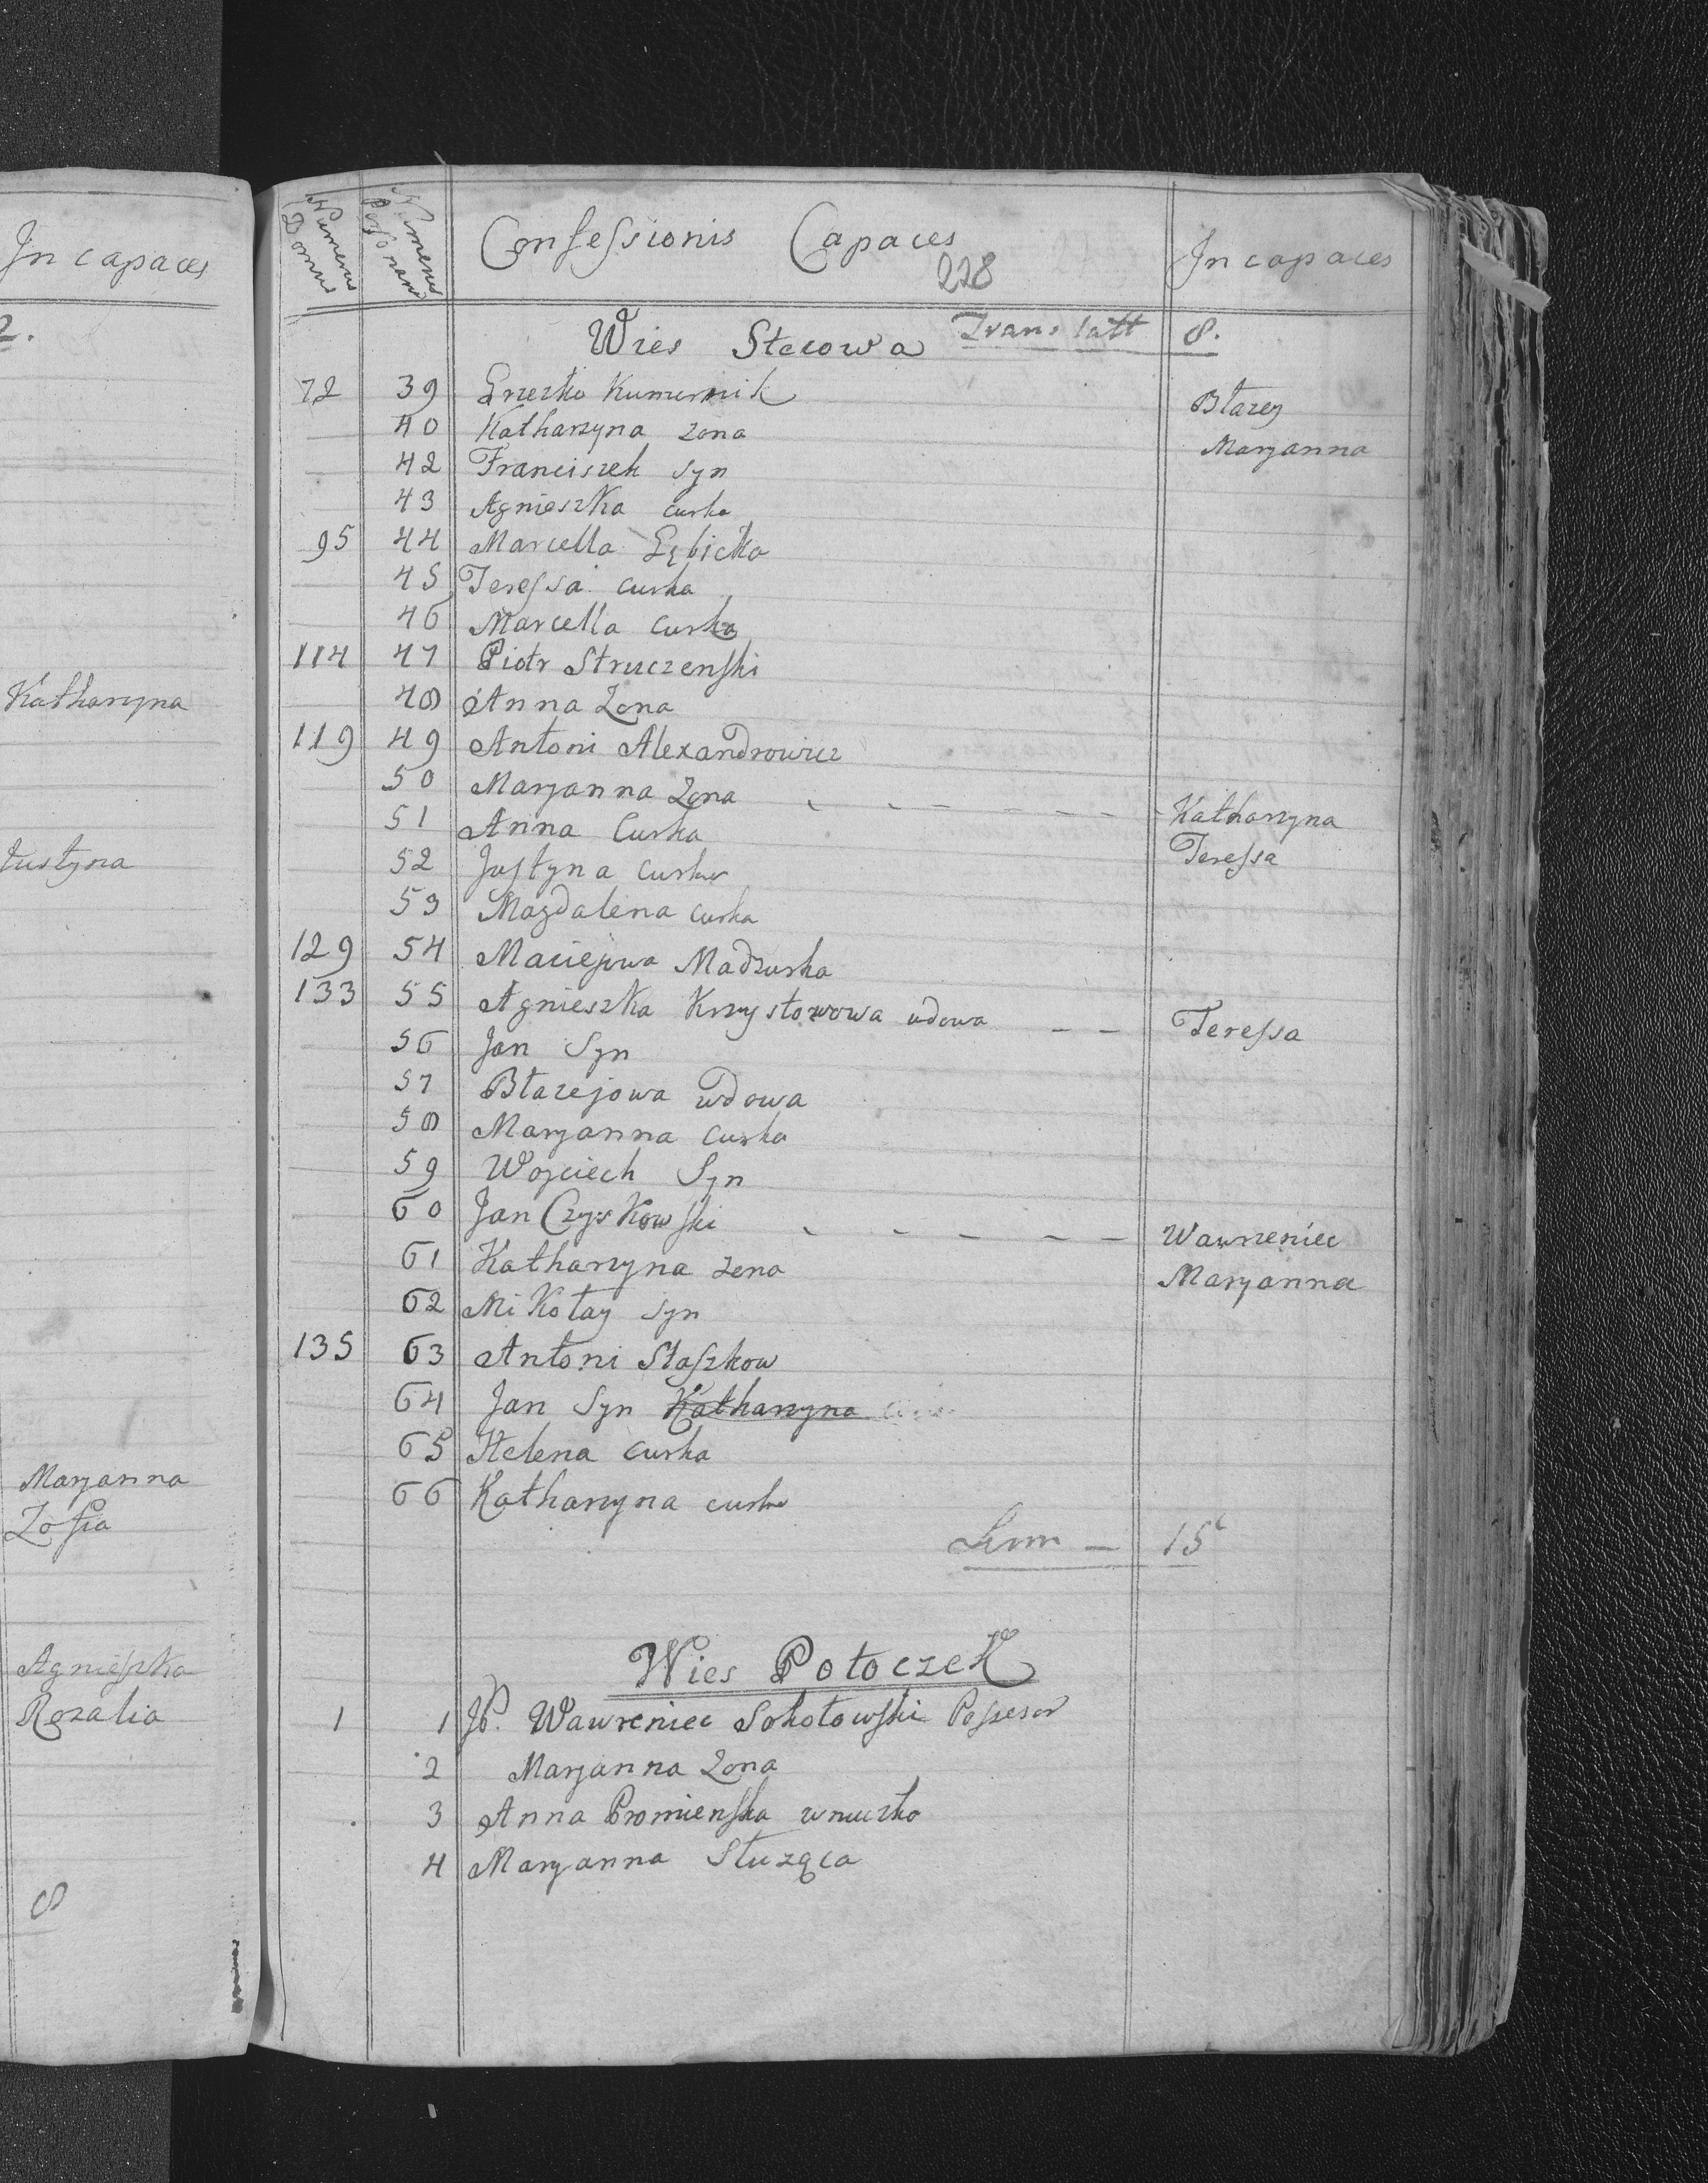 In capaces
2.
Katharzyna
Justyna
Maryanna
Zofia
Agnieszka
Rozalia
8
Numerus Domus
Numerus Personarum
Confessionis Capaces
In capaces
228
Wies Stecowa Translatt 8.
72 39 Grzeszko Kumurnik Błazey
40 Katharzyna zona Maryanna
42 Franciszek syn
43 Agnieszka curka
95 44 Marcella
45 Teressa curka
46 Marcella curka
114 47 Piotr Struczenski
48 Anna Zona
119 49 Antoni Alexandrowicz
50 Maryanna Zona - - - - - - Katharzyna
51 Anna Curka Teressa
52 Justyna curka
53 Magdalena curka
129 54 Maciejowa Madzurka
133 55 Agnieszka Krzysztofowa wdowa - - Teressa
56 Jan Syn
57 Błazejowa wdowa
58 Maryanna curka
59 Wojciech Syn
60 Jan Czyskowski - - - - - - Wawrzeniec
61 Katharzyna zona Maryanna
62 Mikołay syn
135 63 Antoni Staszkow
64 Jan Syn Katharzyna
65 Helena curka
66 Katharzyna curka
Sum — 15
Wies Potoczek
1 1 JP. Wawrzeniec Sokołowski Possesor
2 Maryanna Zona
3 Anna Promienska wnuczka
4 Maryanna Słuząca